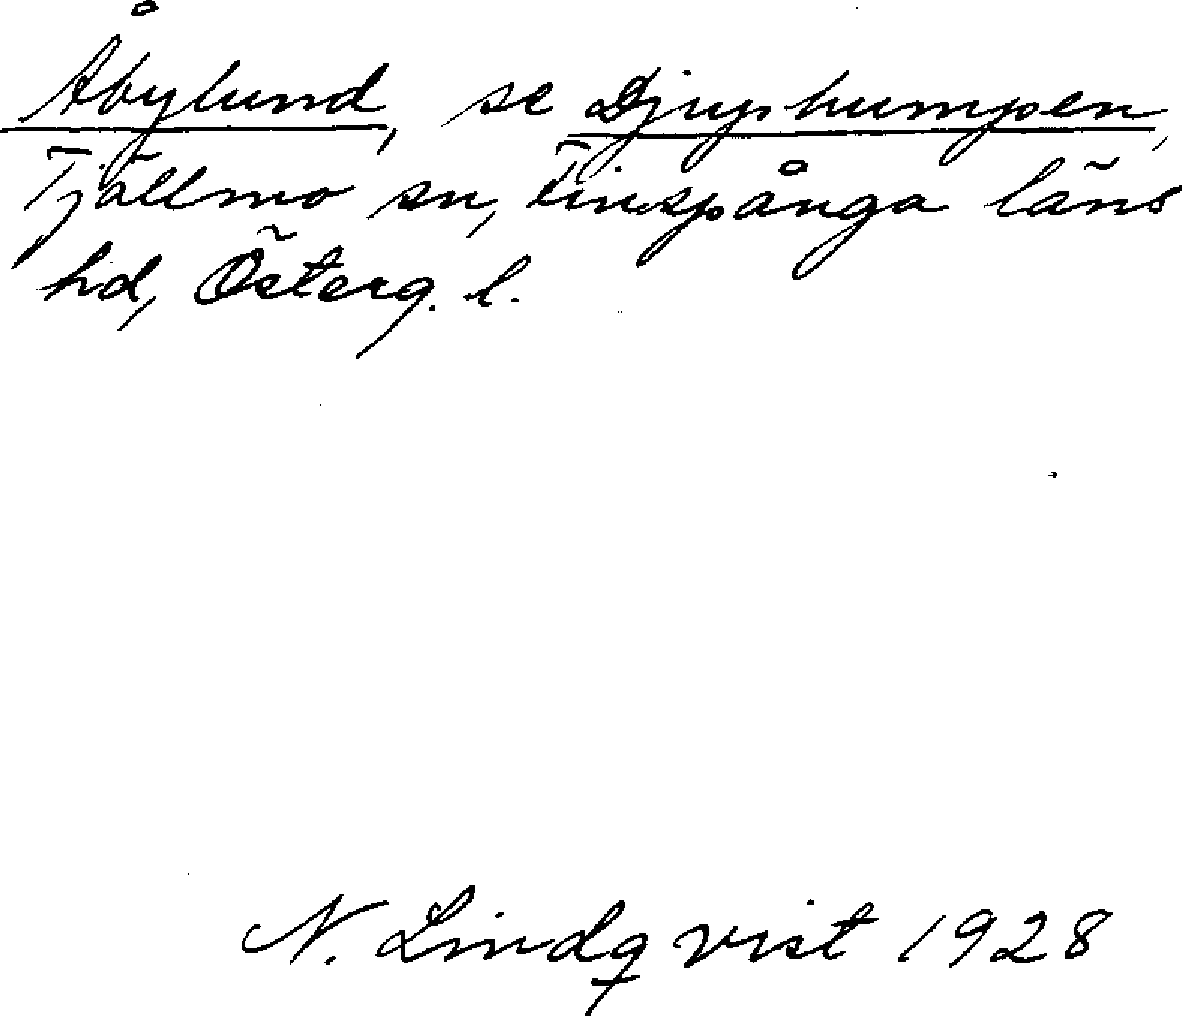 Åbylund, se Djuphumpen,
Tjällmo sn, Finspånga läns
hd, Österg. l.
N. Lindqvist 1928